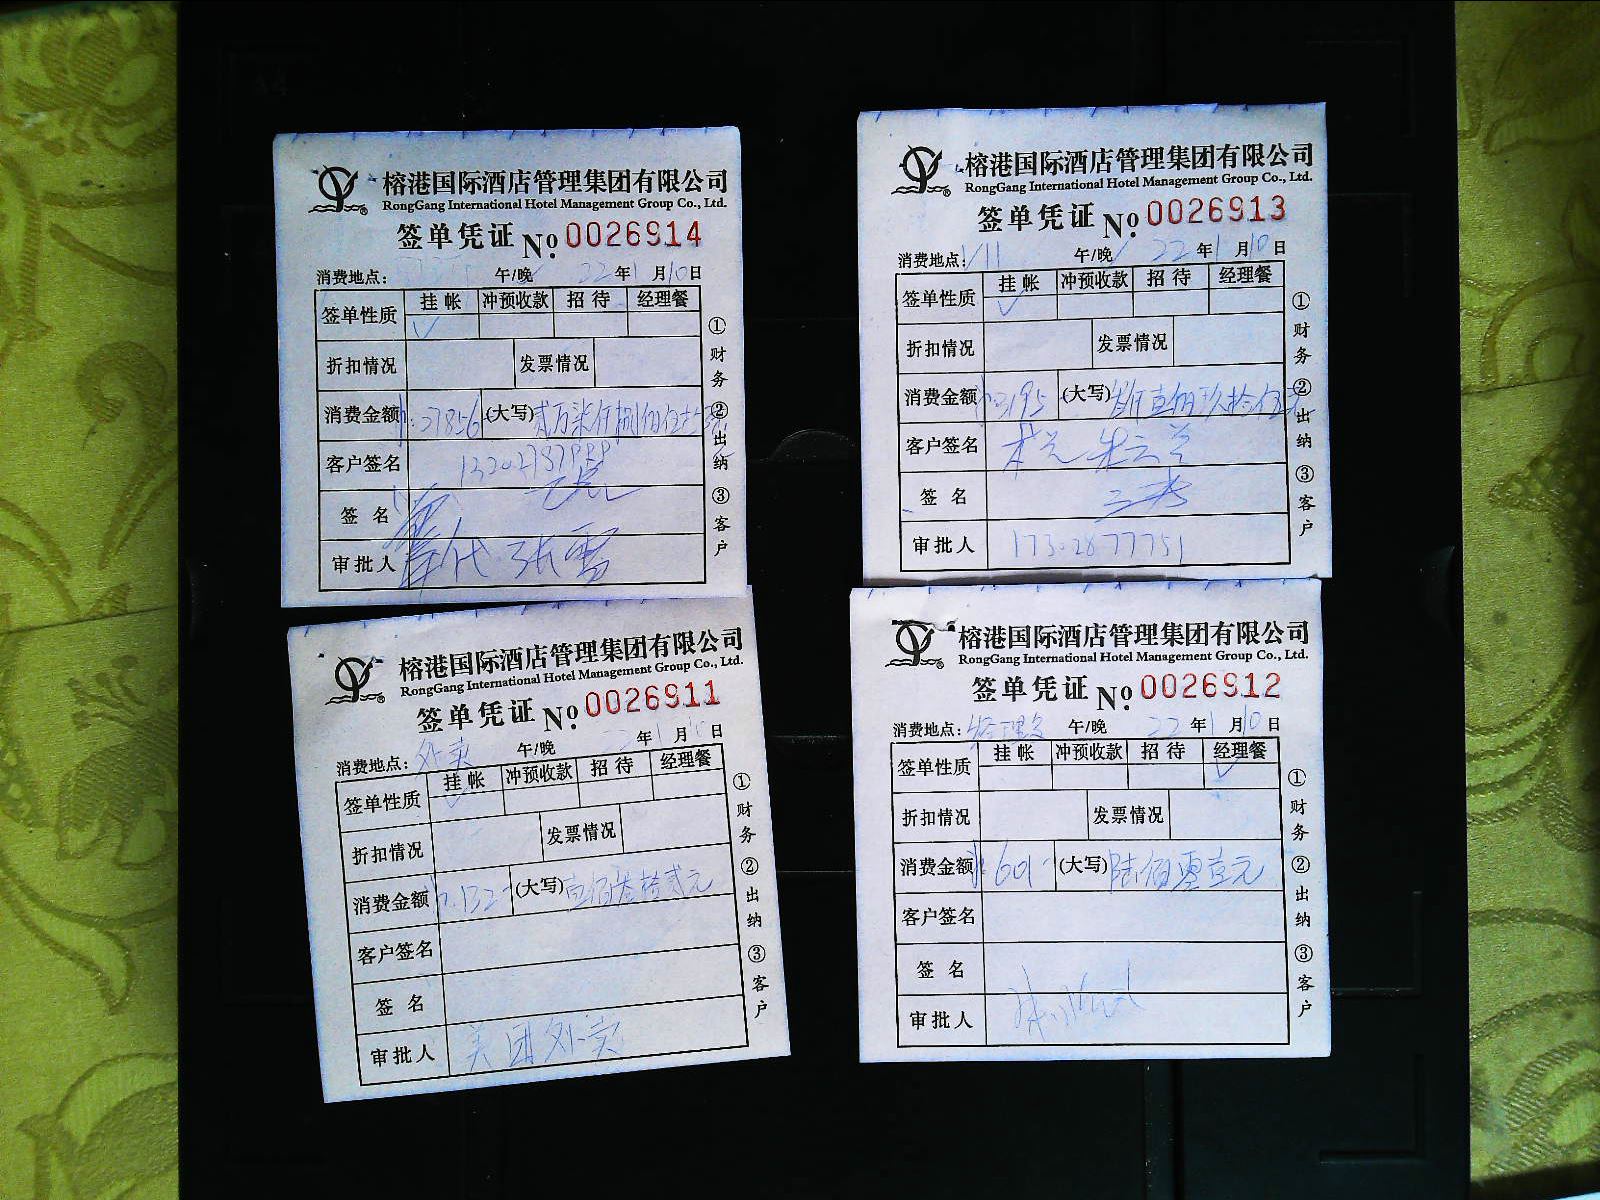 榕港国际酒店管理集团有限公司
RongGang International Hotel Management Group Co., Ltd.
签单凭证 No 0026914
消费地点: 午/晚 22年1月10日
签单性质 挂帐 冲预收款 招待 经理餐
✓
折扣情况 发票情况
消费金额 27856 (大写) 贰万柒仟捌佰伍拾陆
客户签名
签名
审批人 代 张雪
①财务 ②出纳 ③客户
榕港国际酒店管理集团有限公司
RongGang International Hotel Management Group Co., Ltd.
签单凭证 No 0026913
消费地点: 午/晚 22年1月10日
签单性质 挂帐 冲预收款 招待 经理餐
✓
折扣情况 发票情况
消费金额 3195 (大写) 叁仟壹佰玖拾伍元
客户签名
签名
审批人 17302877751
①财务 ②出纳 ③客户
榕港国际酒店管理集团有限公司
RongGang International Hotel Management Group Co., Ltd.
签单凭证 No 0026911
消费地点: 外卖 午/晚 年1月10日
签单性质 挂帐 冲预收款 招待 经理餐
✓
折扣情况 发票情况
消费金额 132- (大写) 壹佰叁拾贰元
客户签名
签名
审批人 美团外卖
①财务 ②出纳 ③客户
榕港国际酒店管理集团有限公司
RongGang International Hotel Management Group Co., Ltd.
签单凭证 No 0026912
消费地点: 午/晚 22年1月10日
签单性质 挂帐 冲预收款 招待 经理餐
✓
折扣情况 发票情况
消费金额 601- (大写) 陆佰零壹元
客户签名
签名
审批人
①财务 ②出纳 ③客户